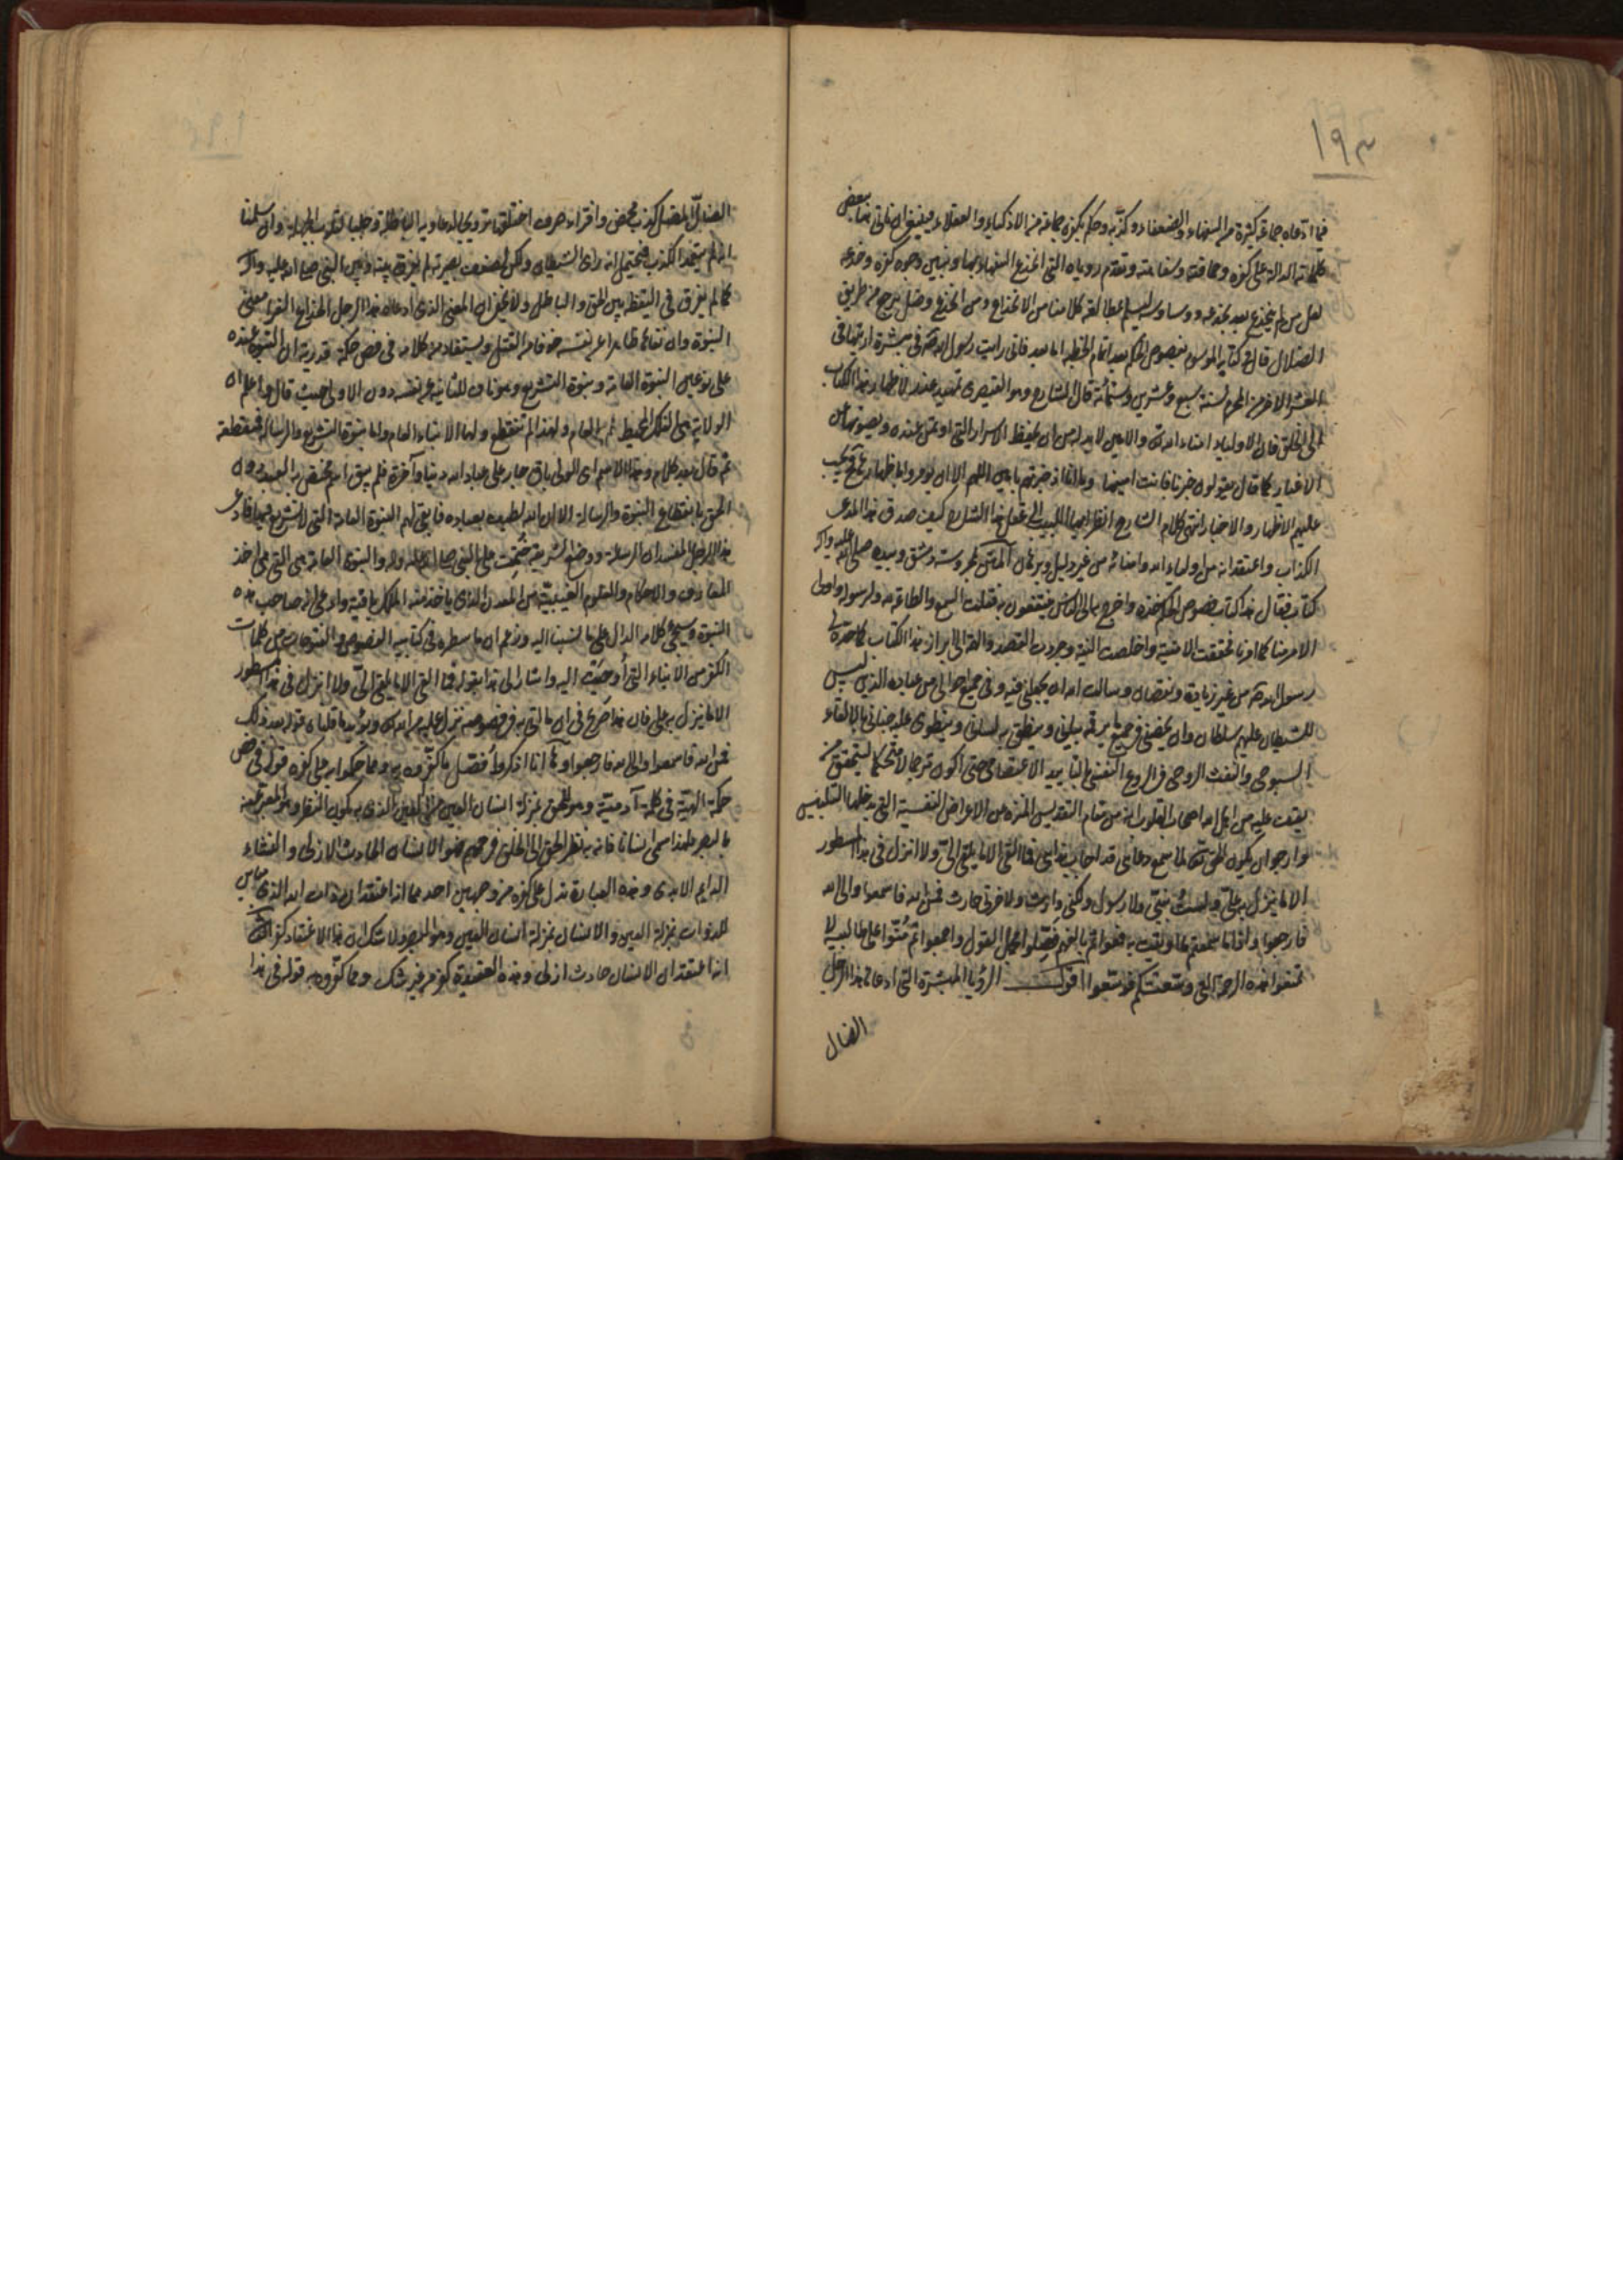 ١٩٣
فيما ادعاه جماعة كثيرة من السفهاء والضعفاء وكذّبه وحكم بكفره جماعة من الاذكياء والعقلاء فينبغي ان ناتي ببعض
كلماته الدالة على كفره وحماقته وسفاهته ونقدم روياه التي انخدع السفهاء بها ونبين وجوه كفره وخدعه
لعل من لم ينخدع بعد بخدعه ووساوسه ليسلم بمطالعة كلامنا من الانخداع ومن انخدع وضل يرجع من طريق
الضلال قال في كتابه الموسوم بفصوص الحكم بعد اتمام الخطبة اما بعد فاني رايت رسول الله في مبشرة اريتها في
العشر الاخر من المحرم لسنة سبع وعشرين وستمائة قال الشارح وهو القيصري تمهيد عذر لاظهار هذا الكتاب
الى الخلق فان الاولياء امناء الله تعالى والامين لابد له من ان يحفظ الاسرار التي اوتمن عنده ويصونها عن
الاغيار كما قال يقولون خبرنا فانت امينها وما انا ان خبرتهم بامين اللهم الا ان يومروا باظهار
عليهم الاظهار والاخبار انتهى كلام الشارح انظر ايها اللبيب الى عقل هذا الشارح كيف صدق هذا المدعي
الكذاب واعتقد انه من اولياء الله وامنائه من غير دليل وبرهان المتن بمحروسة دمشق وبيده صلى الله عليه واله
كتاب فقال هذا كتاب فصوص الحكم خذه واخرج به الى الناس ينتفعون به فقلت السمع والطاعة لله ولرسوله واولى
الامر منا كما امرنا فحققت الامنية واخلصت النية وجردت القصد والهمة الى ابراز هذا الكتاب كما حده لي
رسول الله من غير زيادة ونقصان وسالت الله ان يجعلني فيه وفي جميع احوالي من عباده الذين ليس
للشيطان عليهم سلطان وان يخصني في جميع ما يرقمه بناني وينطق به لساني وينطوي عليه جناني بالالقاء
السبوحي والنفث الروحي في الروع النفسي بالتاييد الاعتصامي حتى اكون مترجما لا متحكما ليتحقق من
يقف عليه من اهل الله اصحاب القلوب انه من مقام التقديس المنزه عن الاغراض النفسية التي يدخلها التلبيس
وارجو ان يكون الحق تعالى لما سمع دعائي قد اجاب ندائي فما القي الا ما يلقى الي ولا انزل في هذا المسطور
الا ما ينزل به علي ولست بنبي ولا رسول ولكني وارث ولاخرتي حارث فمن الله فاسمعوا والى الله
فارجعوا واذا ما سمعتم ما اتيت به فعوا ثم بالفهم فصّلوا مجمل القول واجمعوا ثم منّوا على طالبيه لا
تمنعوا هذه الرحمة التي وسعتكم فوسعوا اقول الرؤيا المبشرة التي ادعاها هذا الرجل
الضال
الضال المضل كذب محض وافتراء صرف اختلقها ترويجا لدعاويه الباطلة وجلبا لقلوب الجهلة وان سلمنا
انه لم يتعمد الكذب فيحتمل انه راى الشيطان ولكن لضعف بصيرته لم يفرق بينه وبين النبي صلى الله عليه واله
كما لم يفرق في اليقظة بين الحق والباطل ولا يخفى ان المعنى الذي ادعاه هذا الرجل الخداع الغرار معنى
النبوة وان نفاها ظاهرا عن نفسه خوفا من القتل ويستفاد من كلامه في فص حكمة قدرية ان النبوة عنده
على نوعين النبوة العامة ونبوة التشريع وهو ناف للثانية عن نفسه دون الاولى حيث قال واعلم ان
الولاية هي الفلك المحيط العام ولهذا لم تنقطع ولها الانباء العام واما نبوة التشريع والرسالة فمنقطعة
ثم قال بعد كلام وهذا الاسم اي الولي باق جار على عباد الله دنيا وآخرة فلم يبق اسم يختص به العبد دون
الحق بانقطاع النبوة والرسالة الا ان الله لطيف بعباده فابقى لهم النبوة العامة التي لا تشريع فيها فادعى
هذا الرجل المفسد ان الرسالة ووضع الشريعة ختمت على النبي صلى الله عليه واله والنبوة العامة هي التي هي اخذ
المعارف والاحكام والعلوم الغيبية من المعدن الذي ياخذ منه الملك باقية وادعى انه صاحب هذه
النبوة وسيجئ كلامه الدال على ما نسبنا اليه وزعم ان ما سطره في كتابيه الفصوص والفتوحات من كلمات
الكفر من الانباء التي أوحيت اليه واشار الى هذا بقوله فما القي الا ما يلقى الي ولا انزل في هذا المسطور
الا ما ينزل به علي فان هذا صريح في ان ما اتى به في فصوصه نزل عليه من الله تعالى ويؤيد ما قلناه قوله بعد ذلك
فمن الله فاسمعوا والى الله فارجعوا وها انا اذكر مفصل ما كفروه به ومما حكموا به على كفره قوله في فص
حكمة الهية في كلمة آدمية وهو للحق بمنزلة انسان العين من العين الذي به يكون النظر وهو المعبر عنه
بالبصر فلهذا سمي انسانا فانه به نظر الحق الى الخلق فرحمهم فهو الانسان الحادث الازلي والنشاء
الدايم الابدي وهذه العبارة تدل على كفره من وجهين احدهما انه اعتقد ان ذات الله الذي مباين
للذوات بمنزلة العين والانسان بمنزلة انسان العين وهو البصر ولا شك ان هذا الاعتقاد كفر الثاني
انه اعتقد ان الانسان حادث ازلي وهذه العقيدة كفر من غير شك ومما كفروه به قوله في هذا